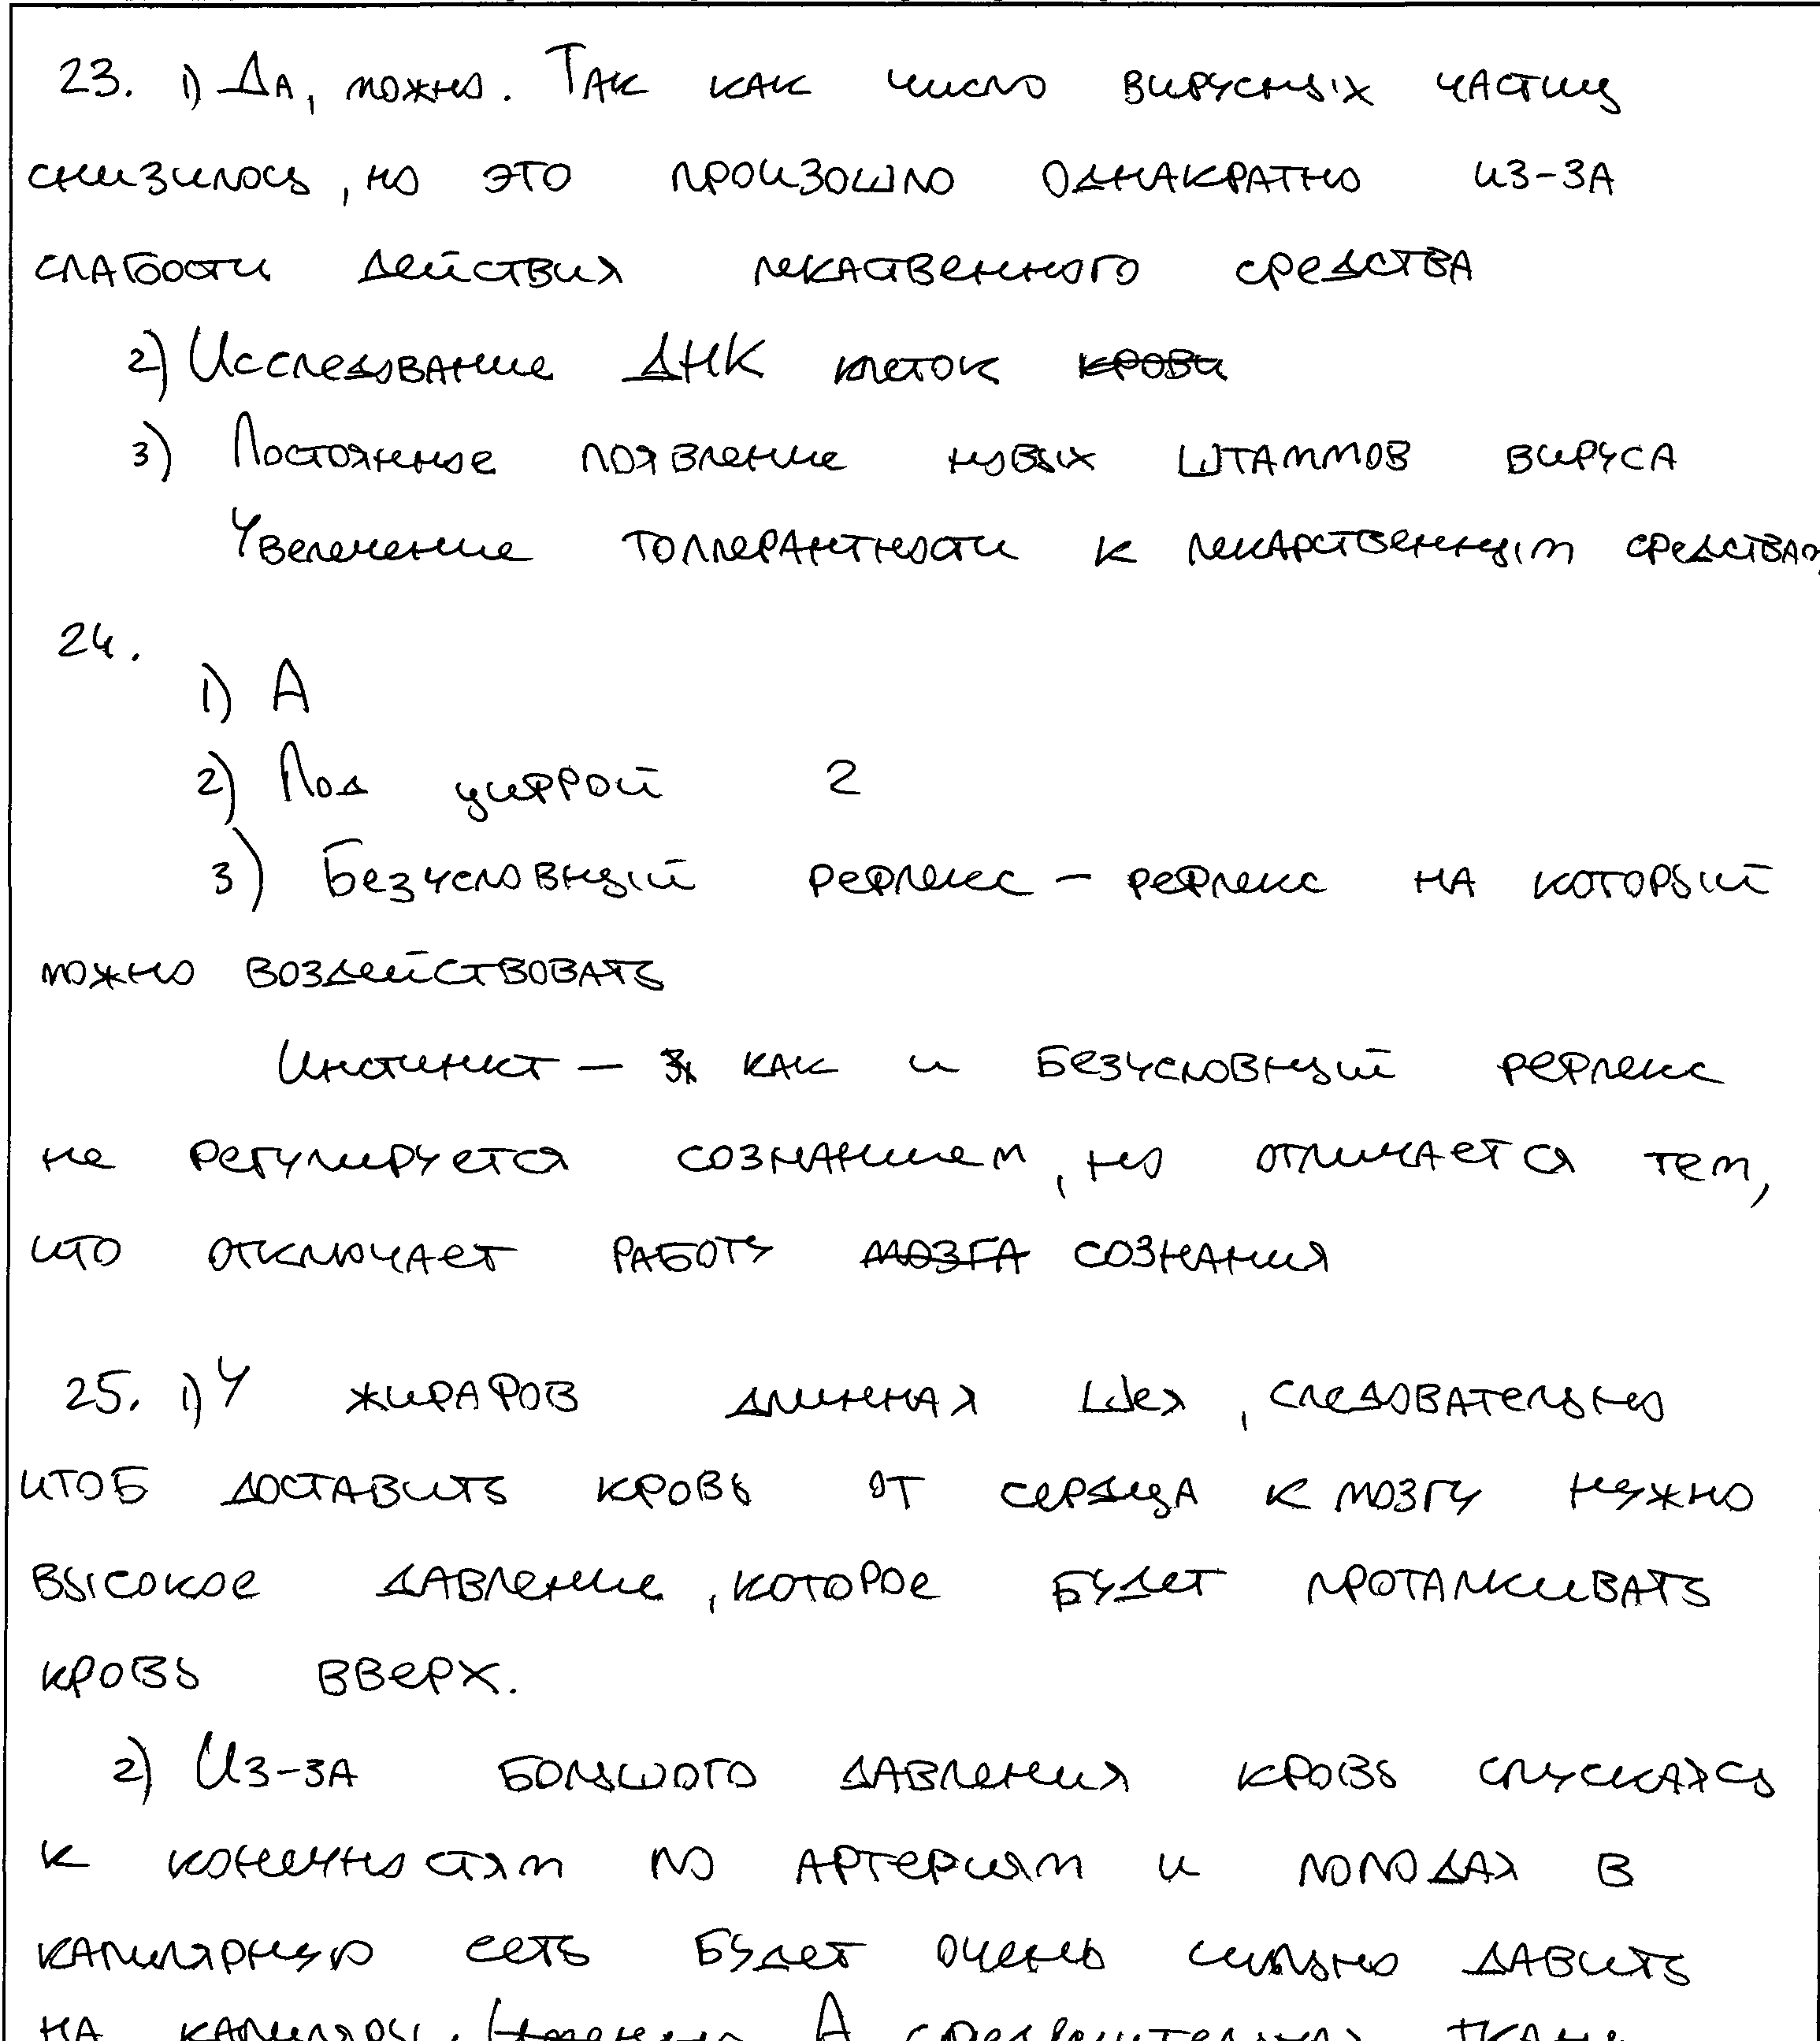 23. 1) Да, можно. Так как число вирусных частиц
снизилось, но это произошло однакратно из-за
слабости действия лекаственного средства
2) Исследование ДНК клеток крови
3) Постоянное появление новых штаммов вируса
Увеличение толлерантности к лекарственным средствам
24.
1) А
2) Под цифрой 2
3) Безусловный рефлекс - рефлекс на который
можно воздействовать
Инстинкт - как и безусловный рефлекс
не регулируется сознанием, но отличается тем,
что отключает работу мозга сознания
25. 1) У жирафов длинная шея, следовательно
чтоб доставить кровь от сердца к мозгу нужно
высокое давление, которое будет проталкивать
кровь вверх.
2) Из-за большого давления кровь спускаясь
к конечностям по артериям и попадая в
капилярную сеть будет очень сильно давить
на капиляры. А соединительная ткань